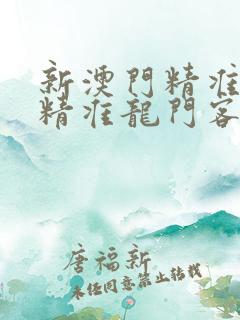 新澳門精准
精准龍門客
唐福新
未经同意禁止转载